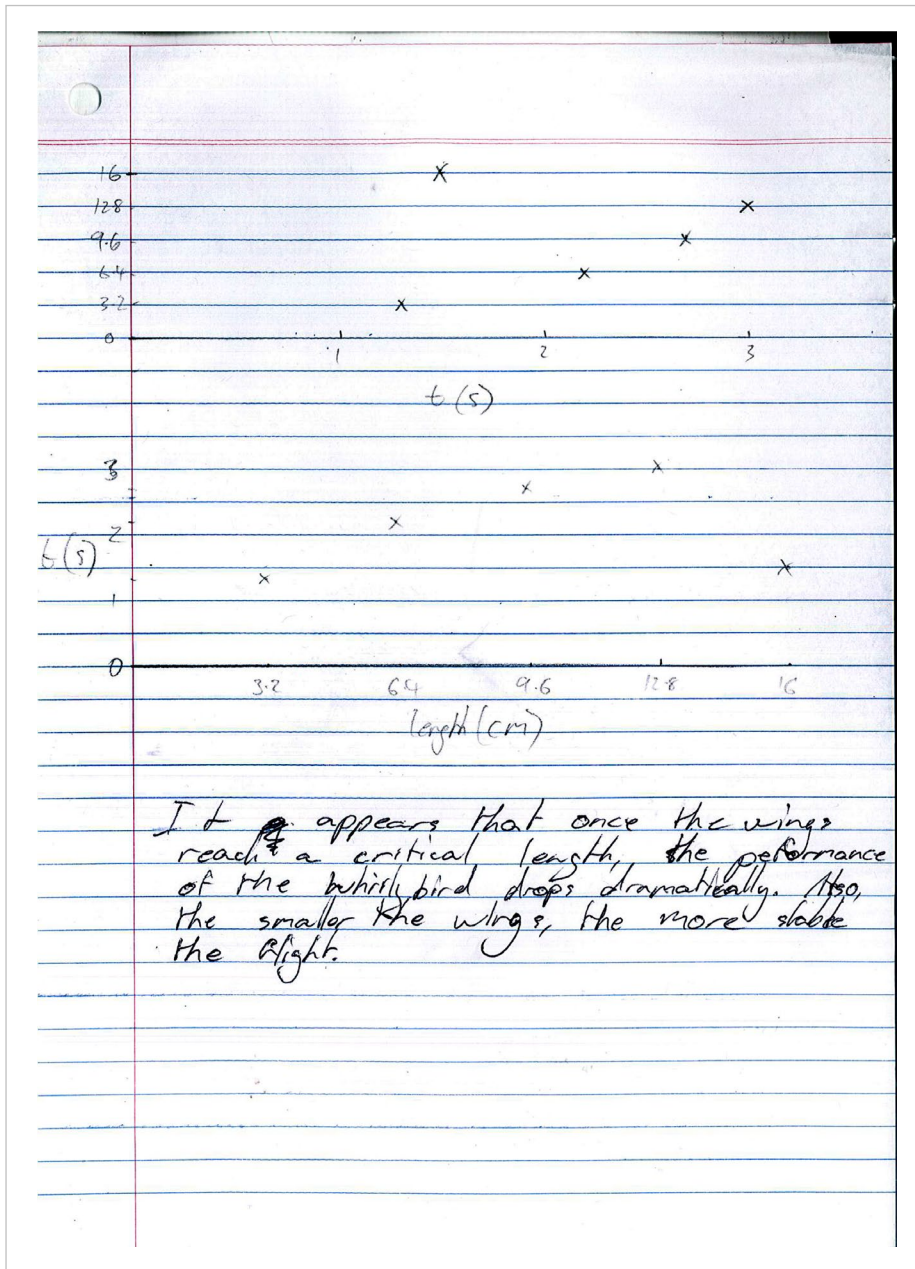 16
12.8
9.6
6.4
3.2
0
1 2 3
t(s)
3
2
t(s)
1
0
3.2 6.4 9.6 12.8 16
length(cm)
It appears that once the wings
reach a critical length, the performance
of the whirlybird drops dramatically. Also,
the smaller the wings, the more stable
the flight.